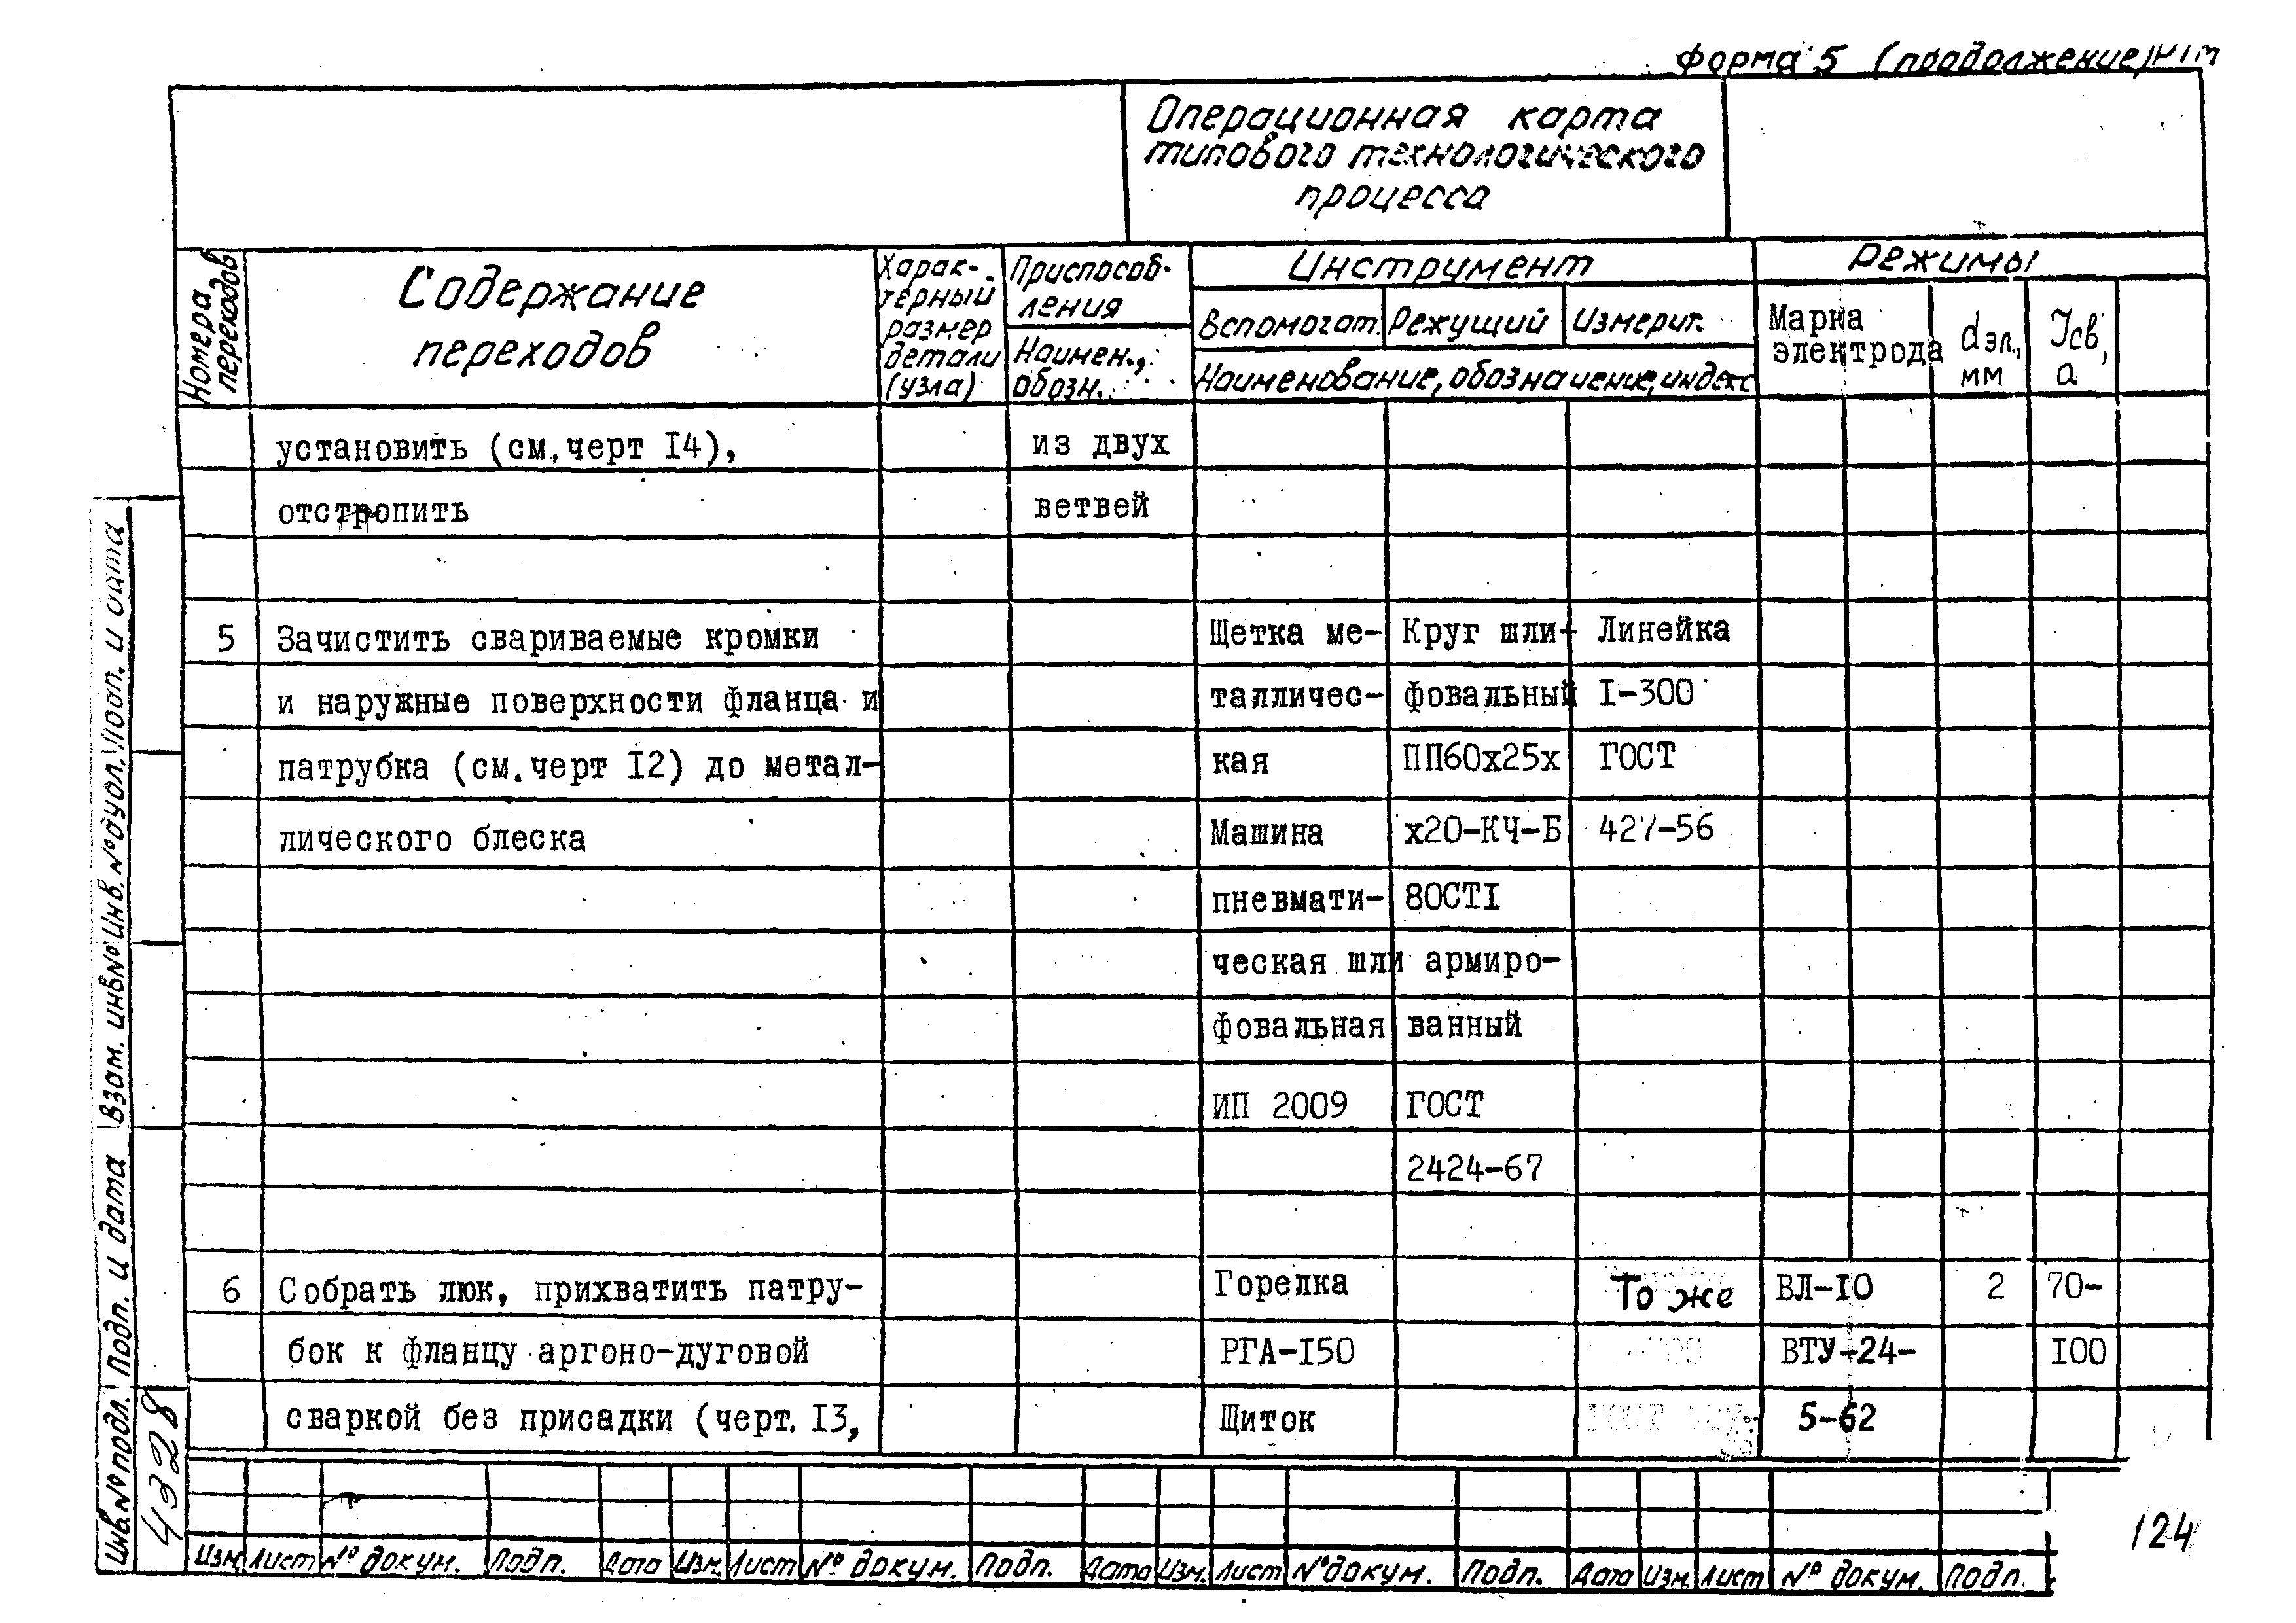 Форма 5 (продолжение) РТМ
Операционная карта
типового технологического
процесса
Номера
переходов
Содержание
переходов
Харак-
терный
размер
детали
(узла)
Приспособ-
ления
Наимен.,
обозн.
Инструмент
Вспомогат. Режущий Измерит.
Наименование, обозначение, индекс
Режимы
Марка
электрода
dэл.,
мм
Iсв,
а
установить (см,черт I4), из двух
отстропить ветвей
5 Зачистить свариваемые кромки Щетка ме- Круг шли- Линейка
и наружные поверхности фланца и талличес- фовальный I-300
патрубка (см.черт I2) до метал- кая ПП60х25х ГОСТ
лического блеска Машина х20-КЧ-Б 427-56
пневмати- 80СТI
ческая шли армиро-
фовальная ванный
ИП 2009 ГОСТ
2424-67
6 Собрать люк, прихватить патру- Горелка То же ВЛ-I0 2 70-
бок к фланцу аргоно-дуговой РГА-I50 ВТУ-24- I00
сваркой без присадки (черт. I3, Щиток 5-62
Изм. Лист № докум. Подп. Дата Изм. Лист № докум. Подп. Дата Изм. Лист № докум. Подп. Дата Изм. Лист № докум. Подп.
Инв.№ подл. Подп. и дата Взам. инв№ Инв.№ дубл. Подп. и дата
4328
124